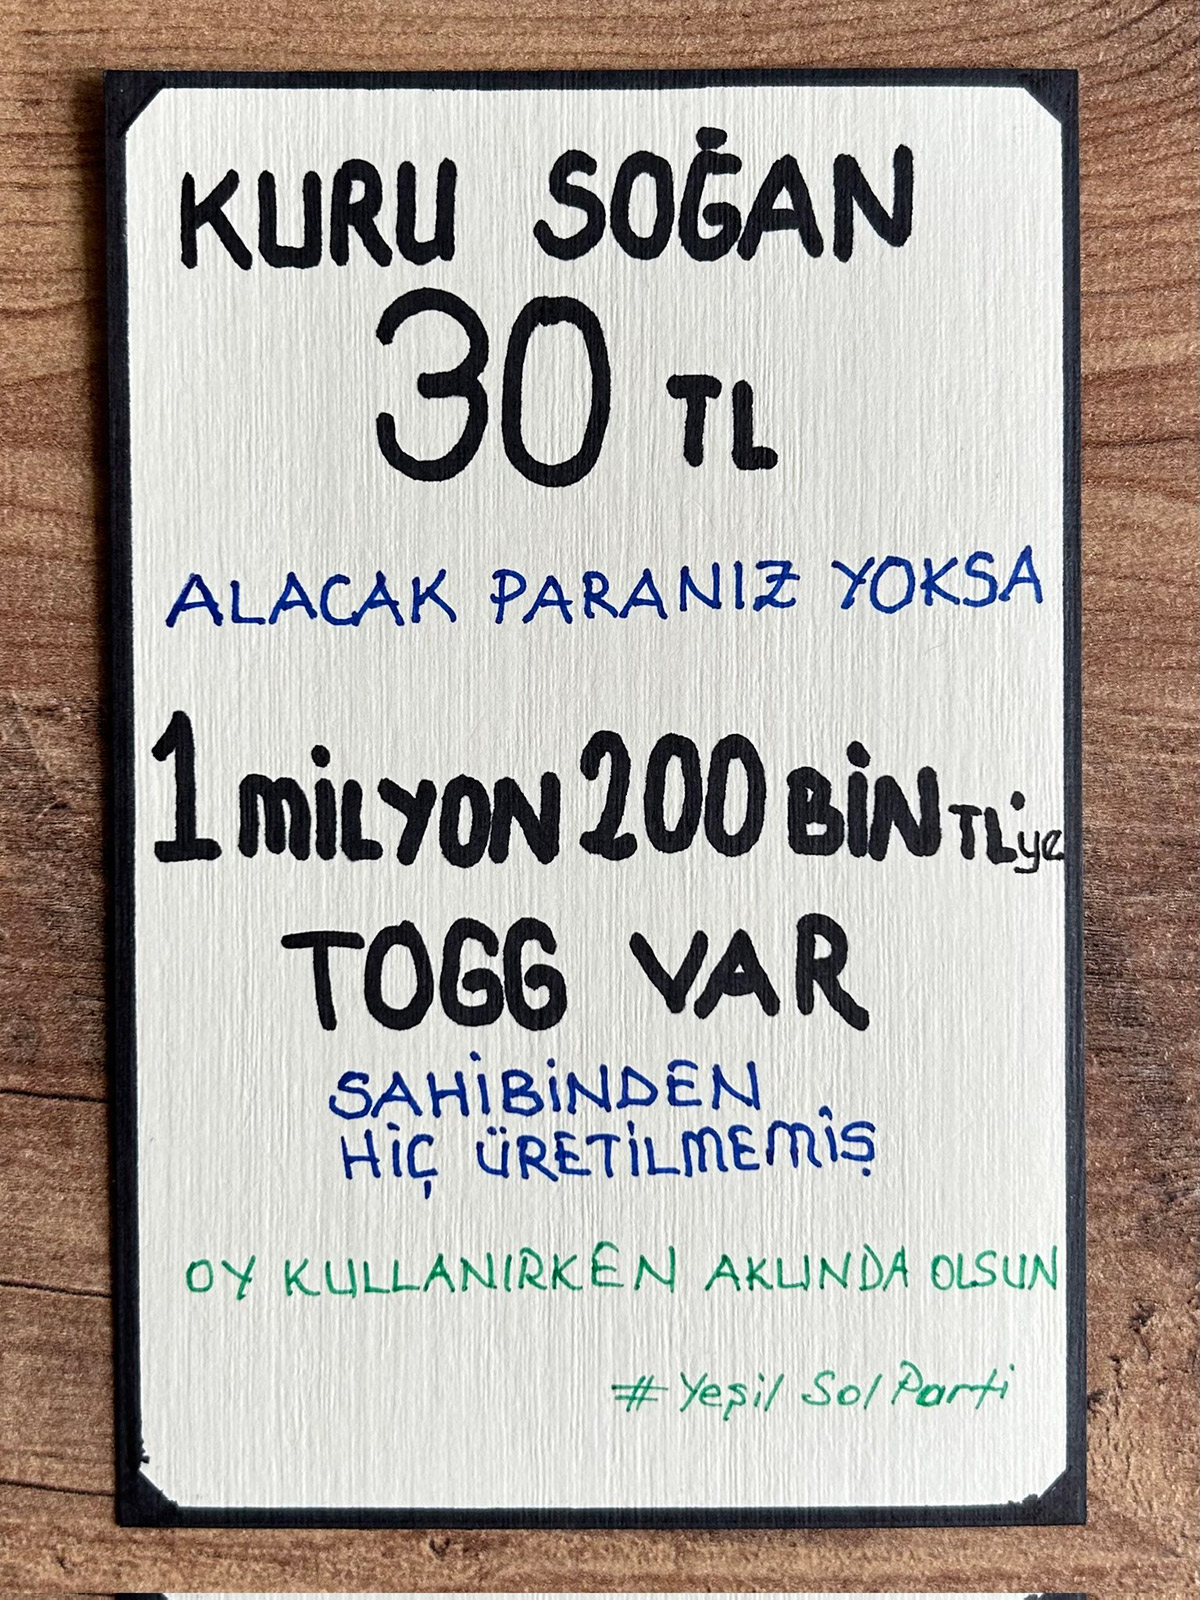 KURU SOĞAN
30 TL
ALACAK PARANIZ YOKSA
1 MİLYON 200 BİN TL'ye
TOGG VAR
SAHİBİNDEN
HİÇ ÜRETİLMEMİŞ
OY KULLANIRKEN AKLINDA OLSUN
#Yeşil Sol Parti